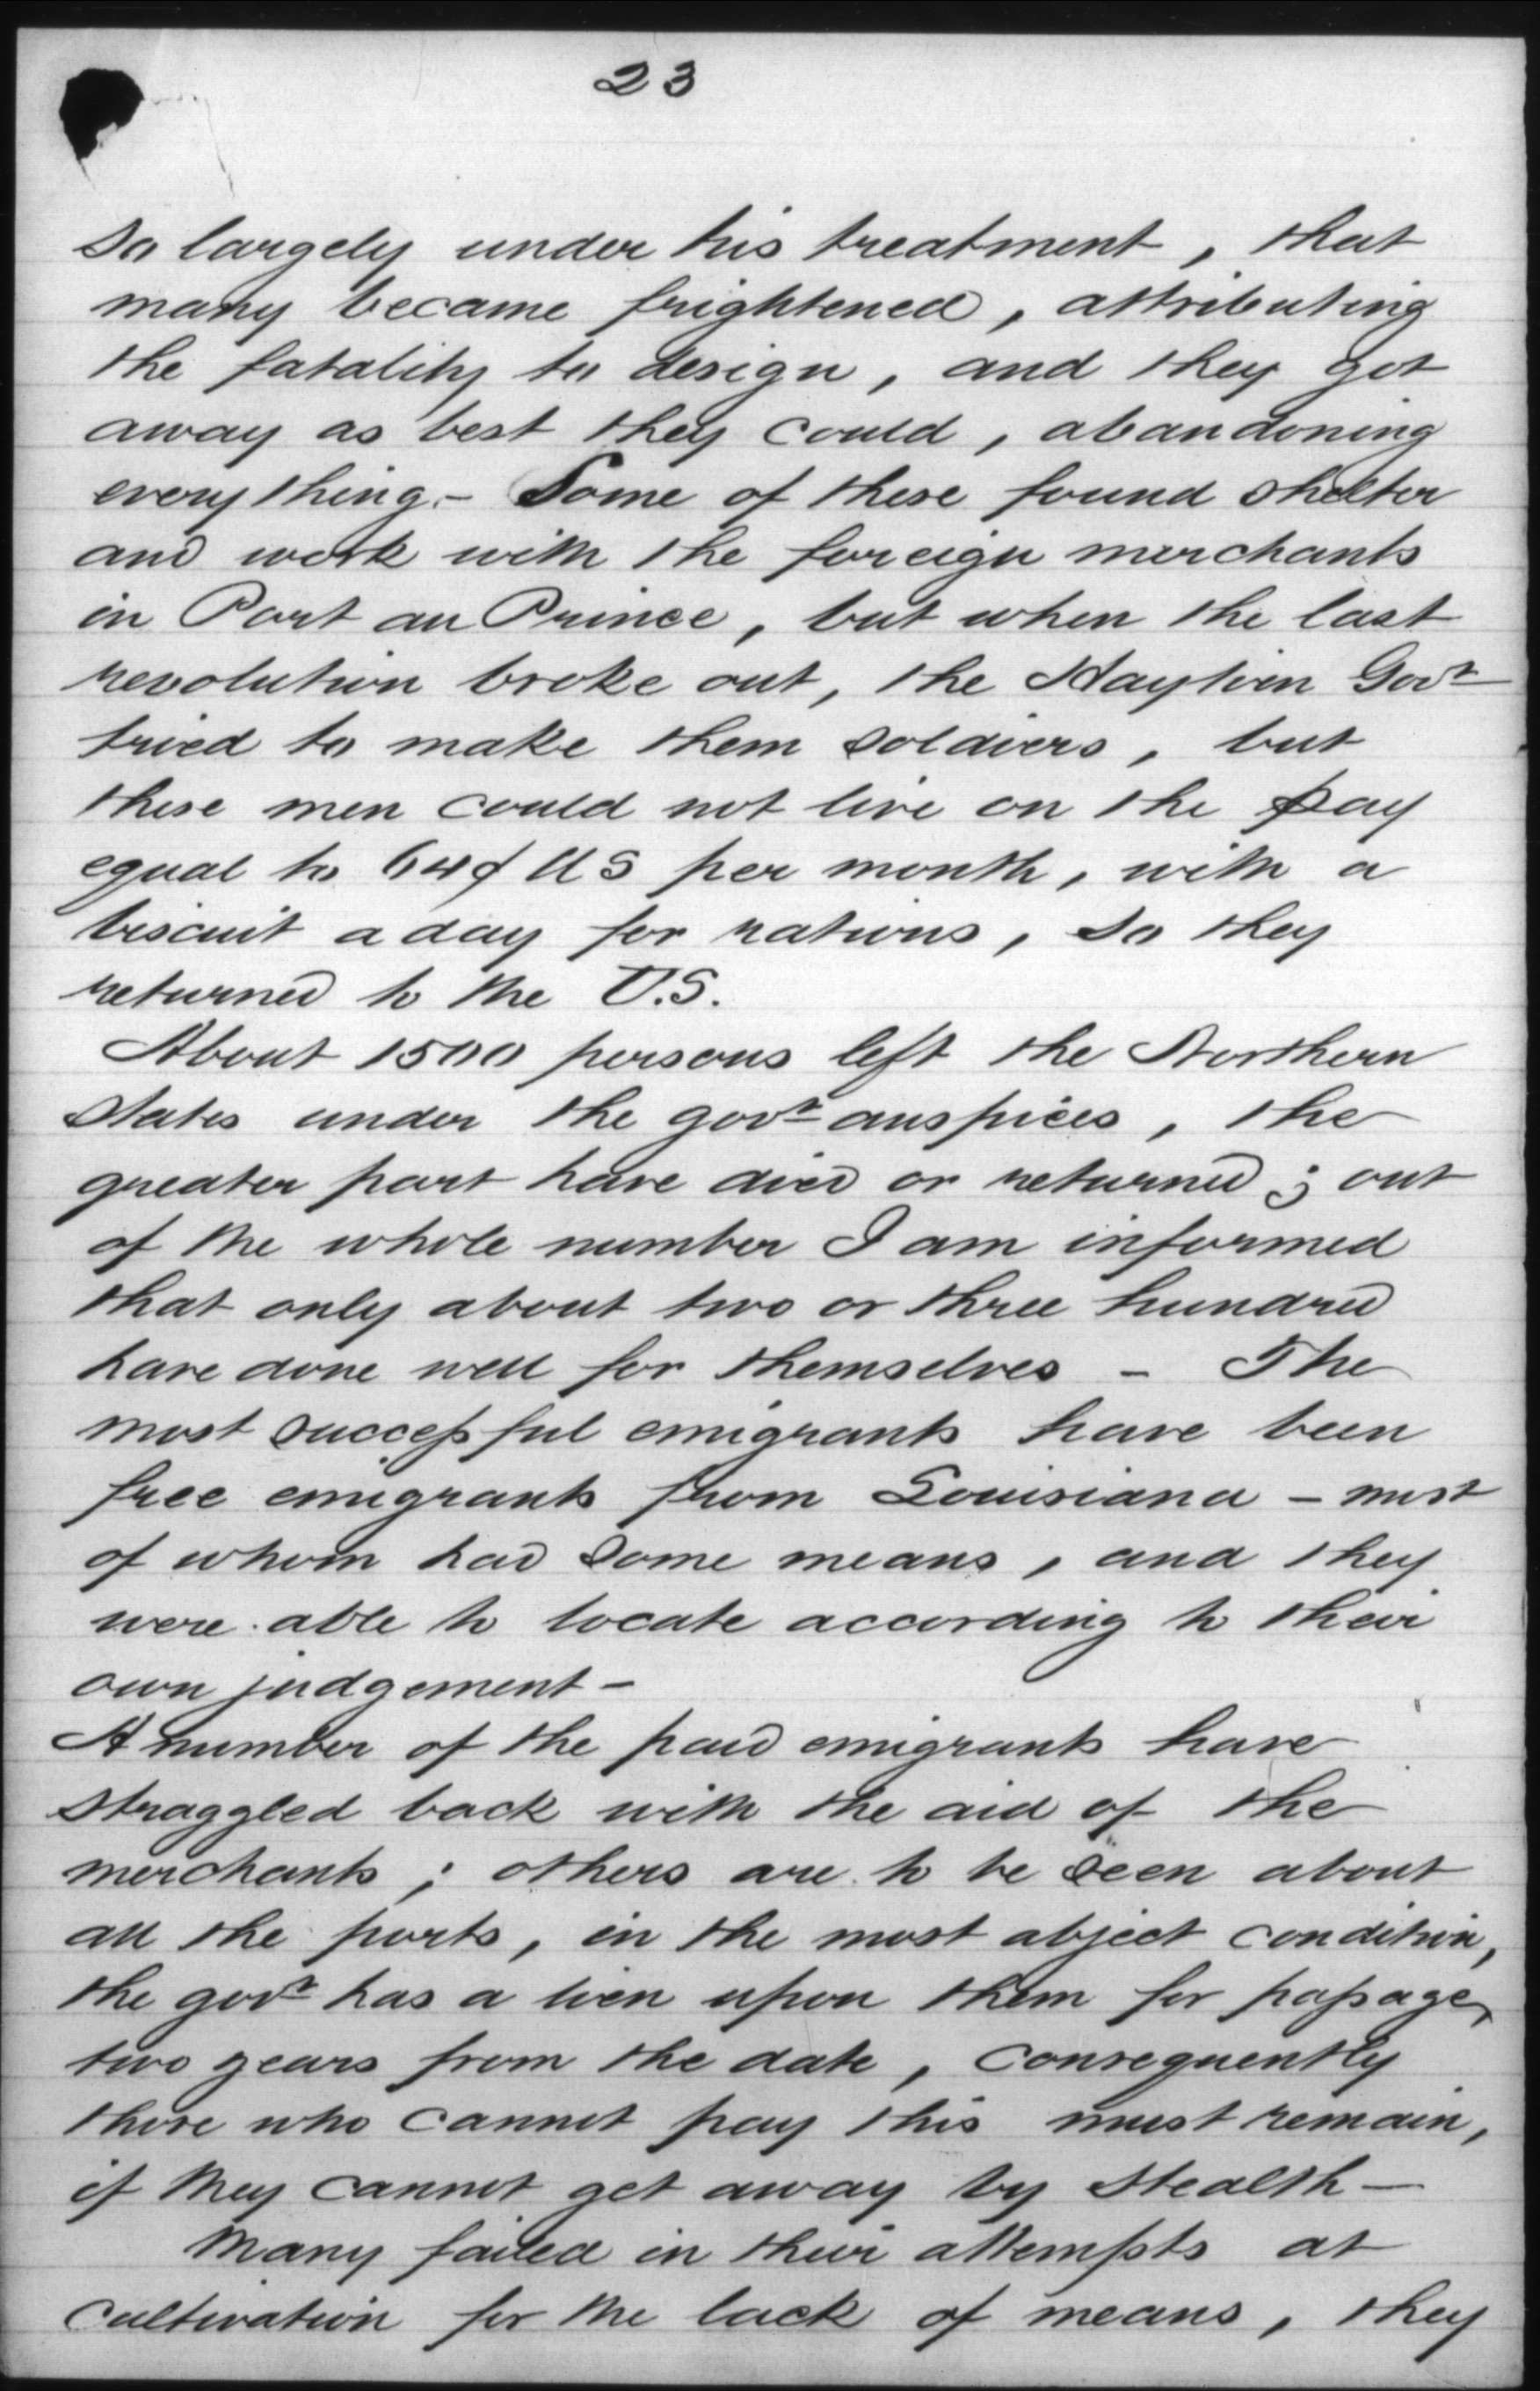 23
so largely under his treatment, that
many became frightened, attributing
the fatality to design, and they got
away as best they could, abandoning
everything.- Some of these found shelter
and work with the foreign merchants
in Port au Prince, but when the last
revolution broke out, the Haytien Govt
tried to make them soldiers, but
these men could not live on the pay
equal to 64¢ US per month, with a
biscuit a day for rations, so they
returned to the U.S.
About 1500 persons left the Northern
States under the govt auspices, the
greater part have died or returned; out
of the whole number I am informed
that only about two or three hundred
have done well for themselves - The
most successful emigrants have been
free emigrants from Louisiana - most
of whom had some means, and they
were able to locate according to their
own judgement -
A number of the paid emigrants have
straggled back with the aid of the
merchants; others are to be seen about
all the ports, in the most abject condition,
the govt has a lien upon them for passage,
two years from the date, consequently
those who cannot pay this must remain,
if they cannot get away by stealth -
Many failed in their attempts at
cultivation for the lack of means, they